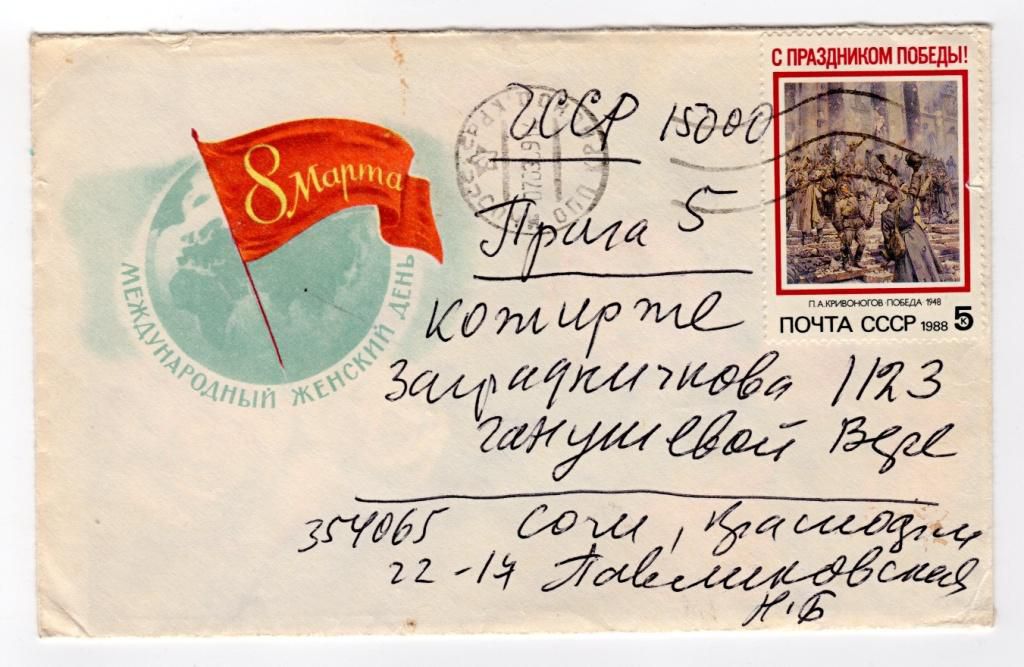 С ПРАЗДНИКОМ ПОБЕДЫ!
П.А.КРИВОНОГОВ·ПОБЕДА·1948
ПОЧТА СССР 1988 5К
8 Марта
МЕЖДУНАРОДНЫЙ ЖЕНСКИЙ ДЕНЬ
ЧССР 15000
Прага 5
Коширже
Заградничкова 1123
Ганушевой Вере
354065 Сочи,
22-17 Павликовская
Н.Б